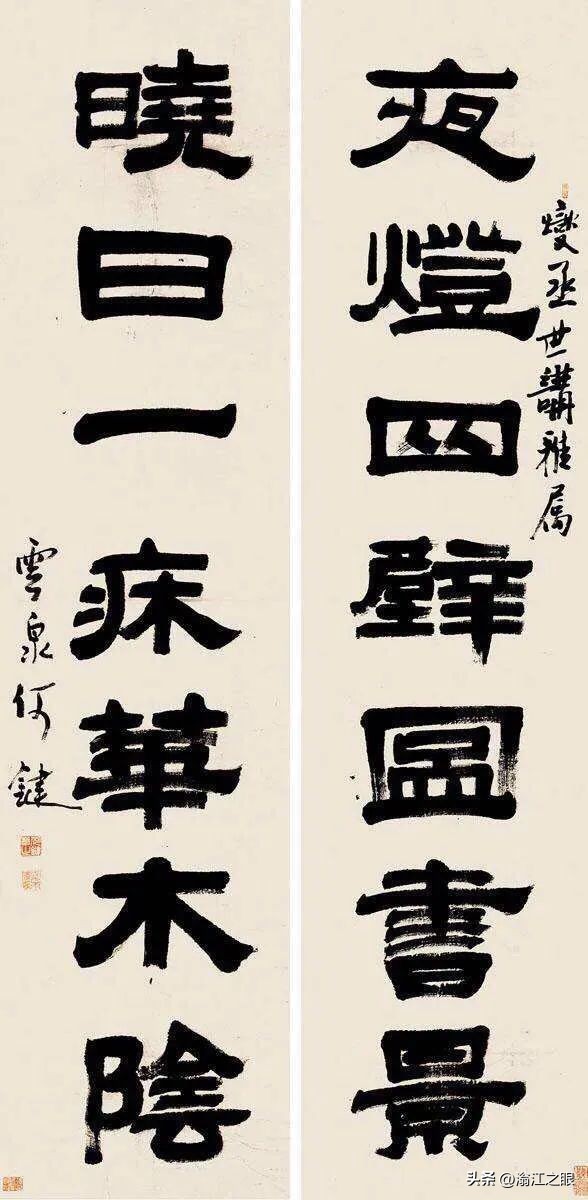 燮丞世講雅屬
夜燈四壁圖書景
曉日一牀華木陰
雲泉何鍵
头条 @渝江之眼